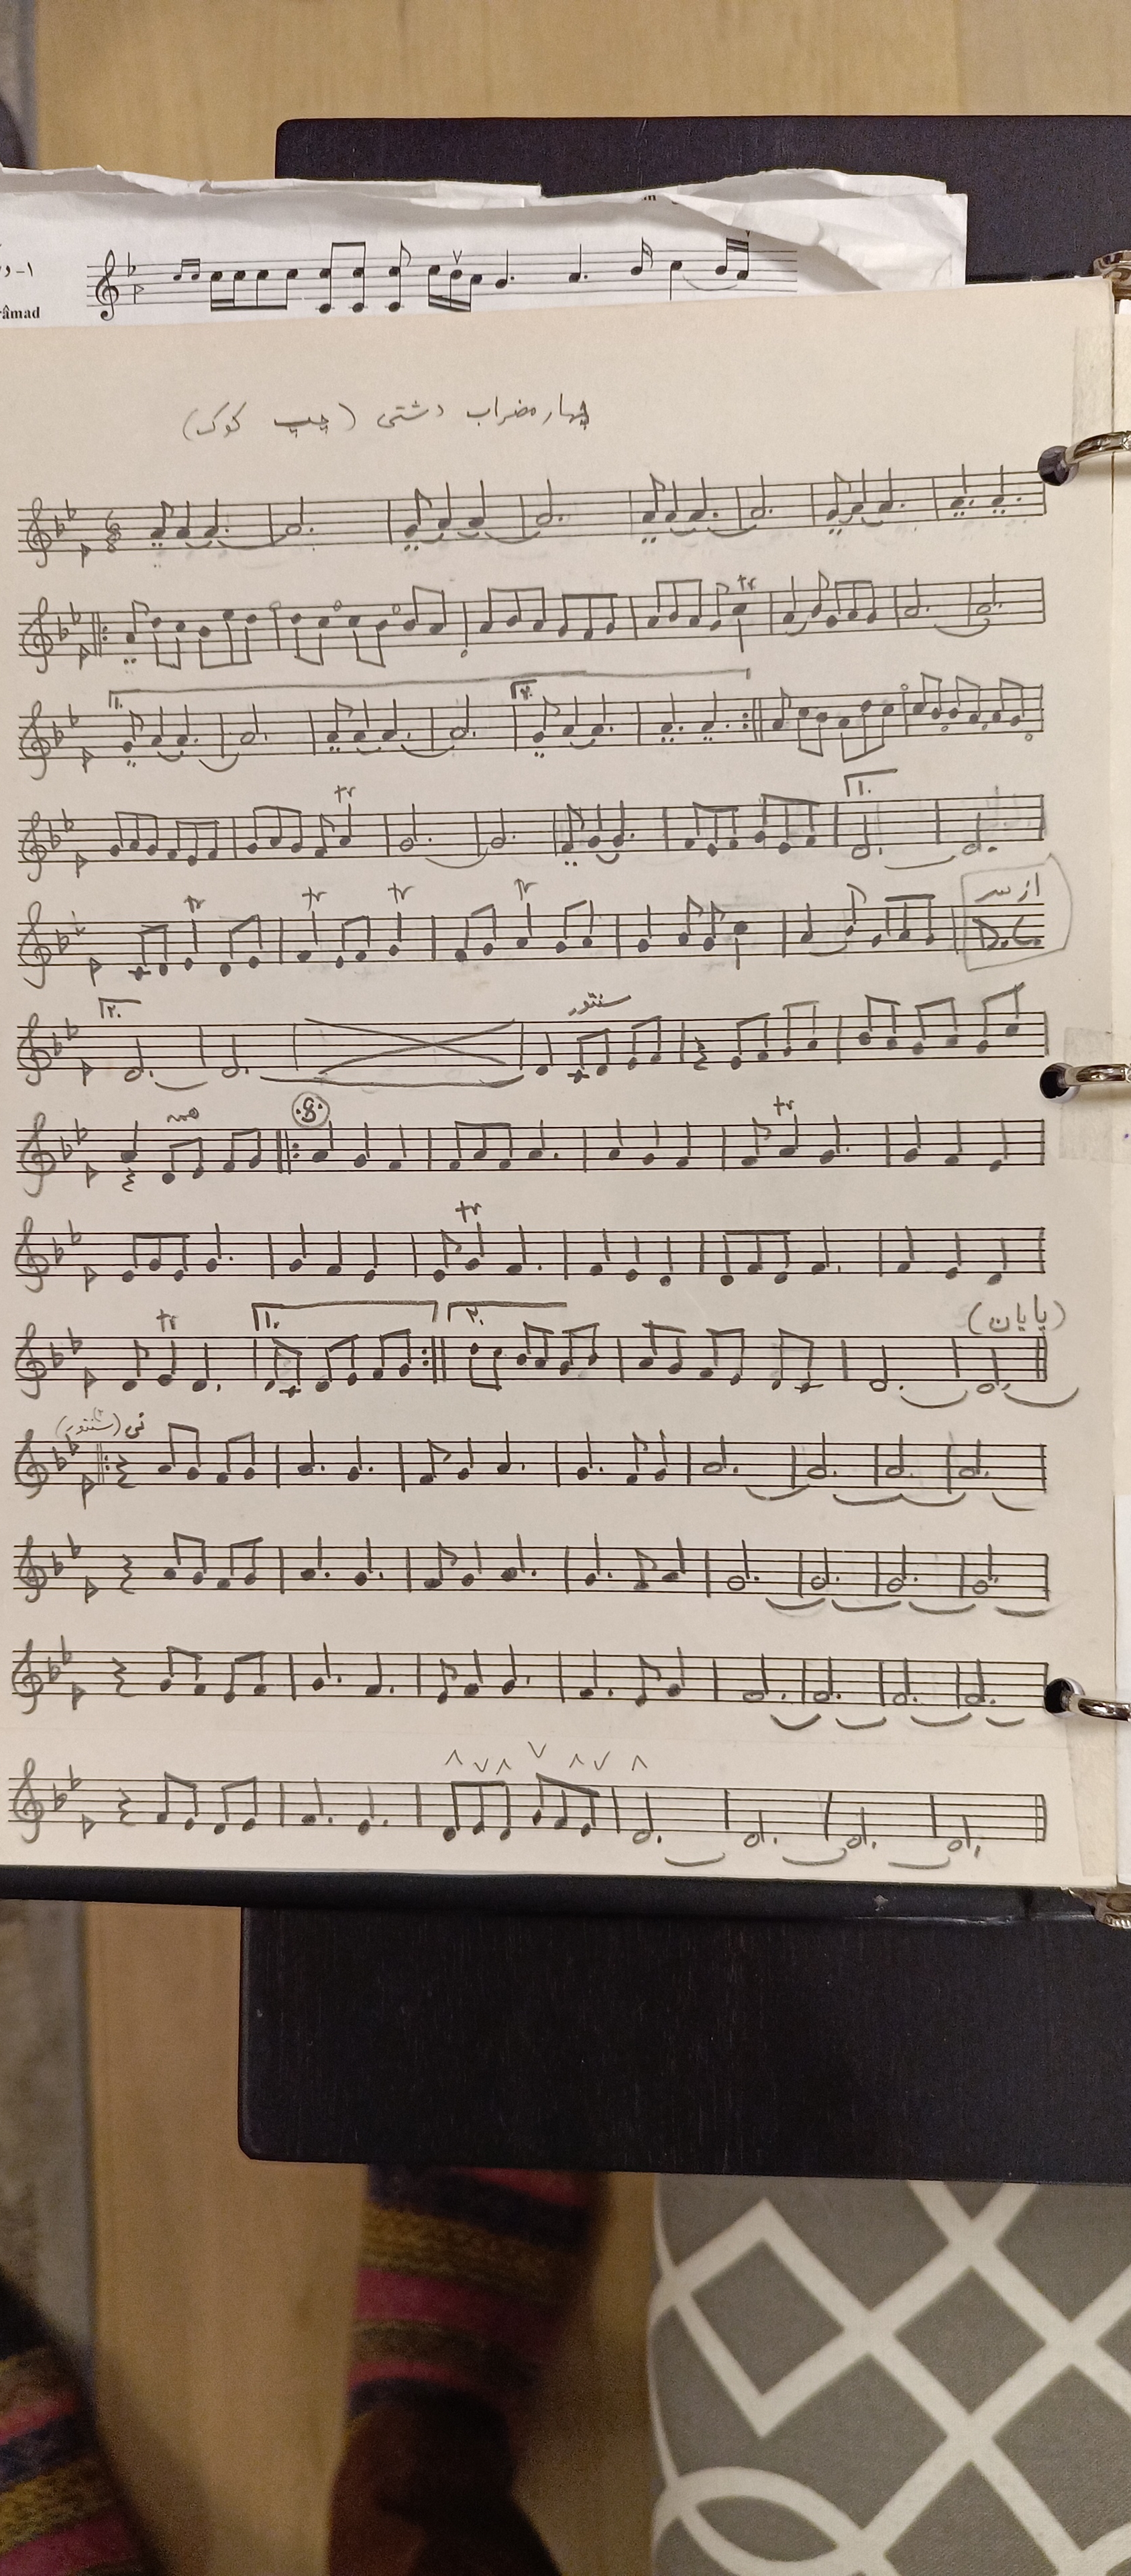 ۱-در
râmad
چهارمضراب دشتی (چپ کوک)
6
8
tr
۱.
۲.
tr
۱.
tr tr tr tr
از سر
D.C.
۲.
سنتور
tr
tr
tr ۱. ۲. (پایان)
نی (سنتور)